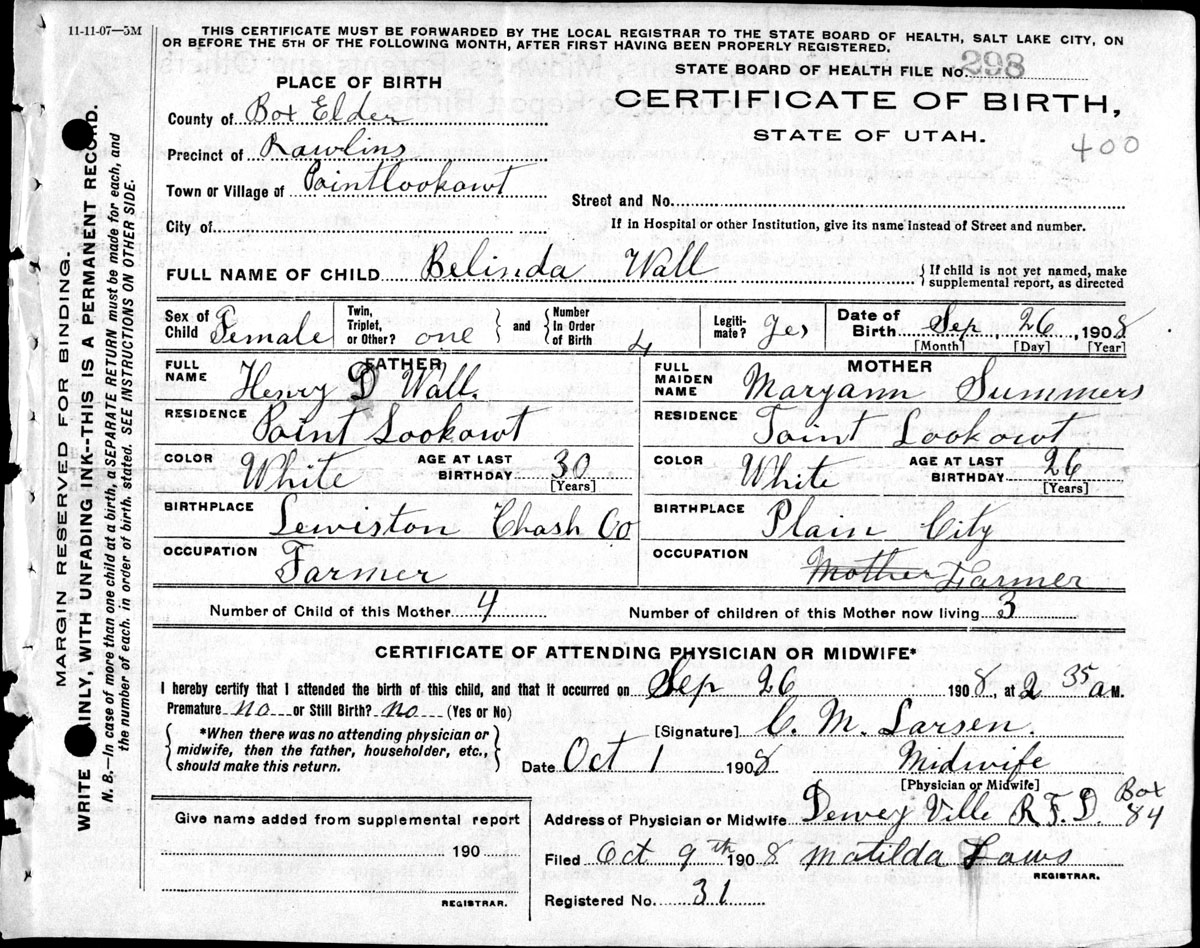 11-11-07—5M
THIS CERTIFICATE MUST BE FORWARDED BY THE LOCAL REGISTRAR TO THE STATE BOARD OF HEALTH, SALT LAKE CITY, ON
OR BEFORE THE 5TH OF THE FOLLOWING MONTH, AFTER FIRST HAVING BEEN PROPERLY REGISTERED.
STATE BOARD OF HEALTH FILE No. 298
CERTIFICATE OF BIRTH,
STATE OF UTAH.
400
PLACE OF BIRTH
County of Box Elder
Precinct of Rawlins
Town or Village of Pointlookowt
Street and No.
City of
If in Hospital or other Institution, give its name Instead of Street and number.
FULL NAME OF CHILD Belinda Wall
{ If child is not yet named, make
supplemental report, as directed
Sex of Child Female
Twin, Triplet, or Other? one } and { Number In Order of Birth 4
Legiti- mate? Yes
Date of Birth Sep 26, 1908
[Month] [Day] [Year]
FATHER
FULL NAME Henry D Wall.
RESIDENCE Point Lookowt
COLOR White AGE AT LAST BIRTHDAY 30
[Years]
BIRTHPLACE Lewiston Chash Co
OCCUPATION Farmer
MOTHER
FULL MAIDEN NAME Maryann Summers
RESIDENCE Point Lookowt
COLOR White AGE AT LAST BIRTHDAY 26
[Years]
BIRTHPLACE Plain City
OCCUPATION Mother Farmer
Number of Child of this Mother 4 Number of children of this Mother now living 3
CERTIFICATE OF ATTENDING PHYSICIAN OR MIDWIFE*
I hereby certify that I attended the birth of this child, and that it occurred on Sep 26 1908, at 2 35 a M.
Premature no or Still Birth? no (Yes or No)
{ *When there was no attending physician or
midwife, then the father, householder, etc.,
should make this return. }
[Signature] C. M. Larsen.
Date Oct 1 1908 Midwife
[Physician or Midwife]
Address of Physician or Midwife Dewey Ville R.F.D. Box 84
Filed Oct 9th 1908 Matilda Laws
REGISTRAR.
Registered No. 31
Give name added from supplemental report
190
REGISTRAR.
MARGIN RESERVED FOR BINDING.
WRITE AINLY, WITH UNFADING INK--THIS IS A PERMANENT RECORD.
N. B.—In case of more than one child at a birth, a SEPARATE RETURN must be made for each, and
the number of each, in order of birth, stated. SEE INSTRUCTIONS ON OTHER SIDE.